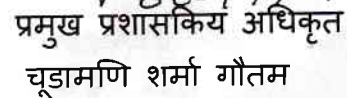 प्रमुख प्रशासकिय अधिकृत
चूडामणि शर्मा गौतम